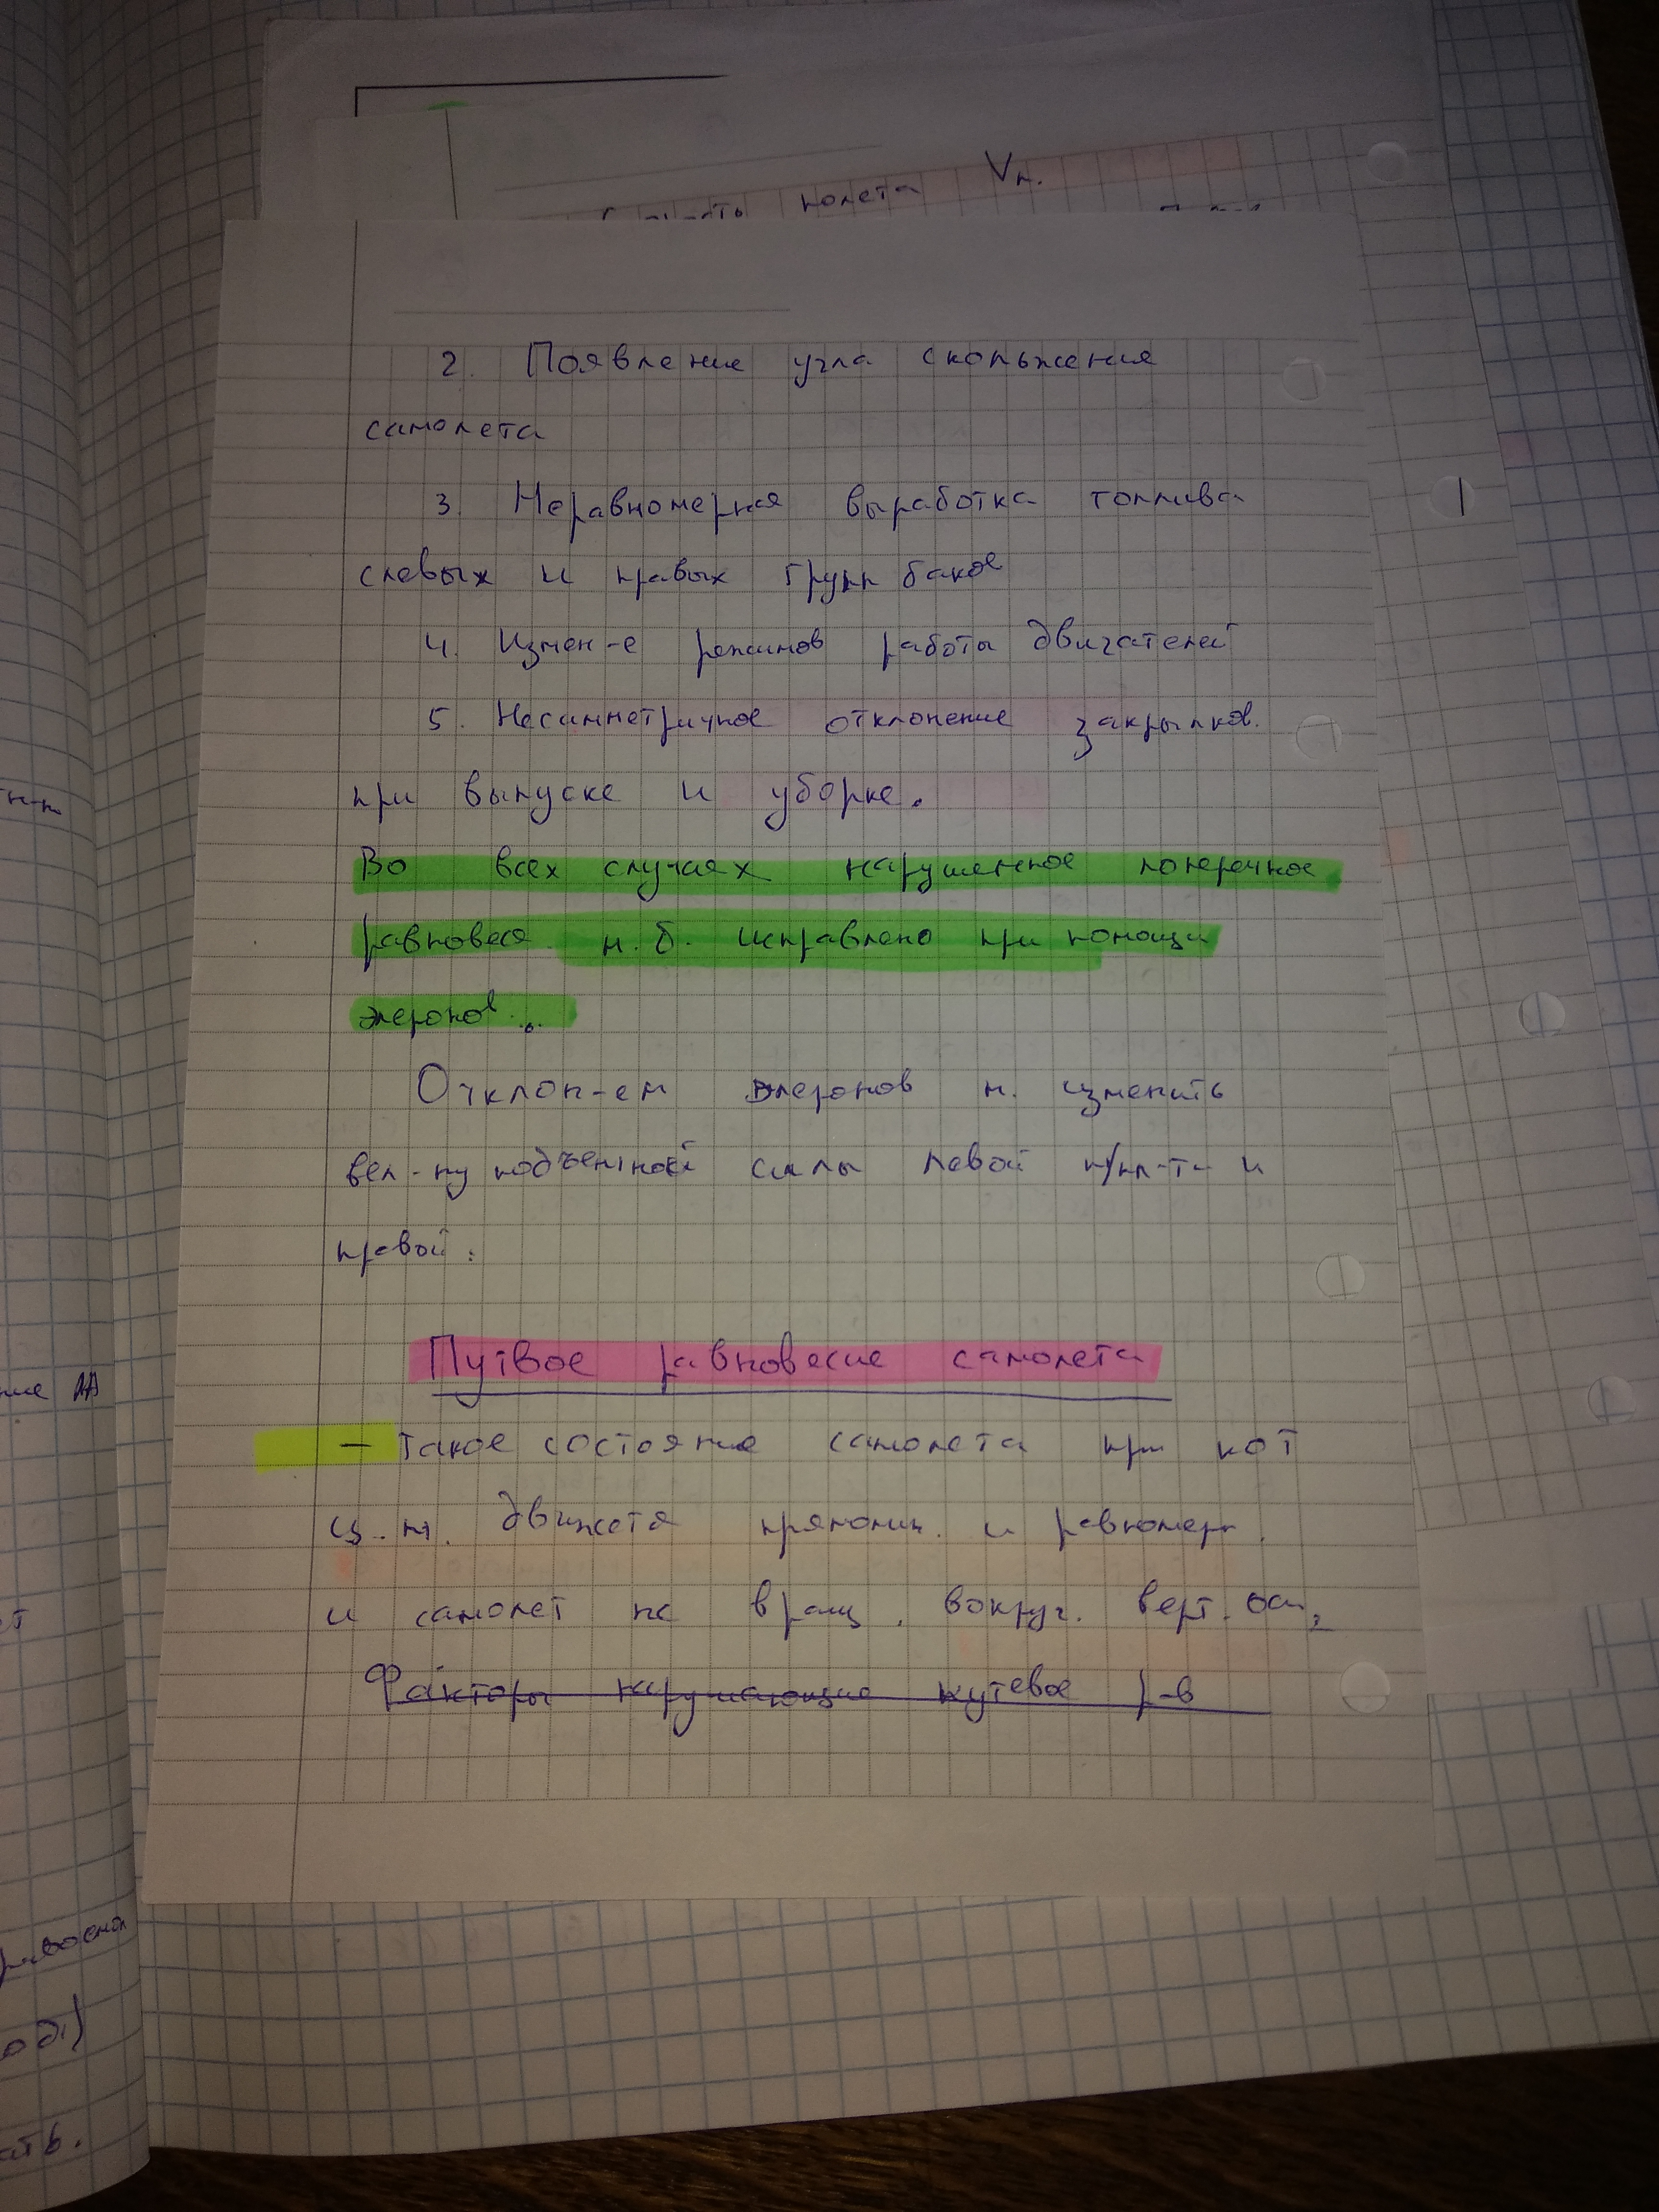 полета Vп.
2. Появление угла скольжения
самолета
3. Неравномерная выработка топлива
с левых и правых групп баков
4. Измен-е режимов работы двигателей
5. Несимметричное отклонение закрылков.
при выпуске и уборке.
Во всех случаях нарушенное поперечное
равновеся м.б. исправлено при помощи
элеронов...
Отклон-ем элеронов м. изменить
вел-ну подъемной силы левой п/пл-ти и
правой.
Путвое равновесие самолета
— такое состояние самолета при кот
ц.м. движется прямолин. и равномерн.
и самолет не вращ. вокруг. верт. оси,
Факторы нарушающие путевое р-в